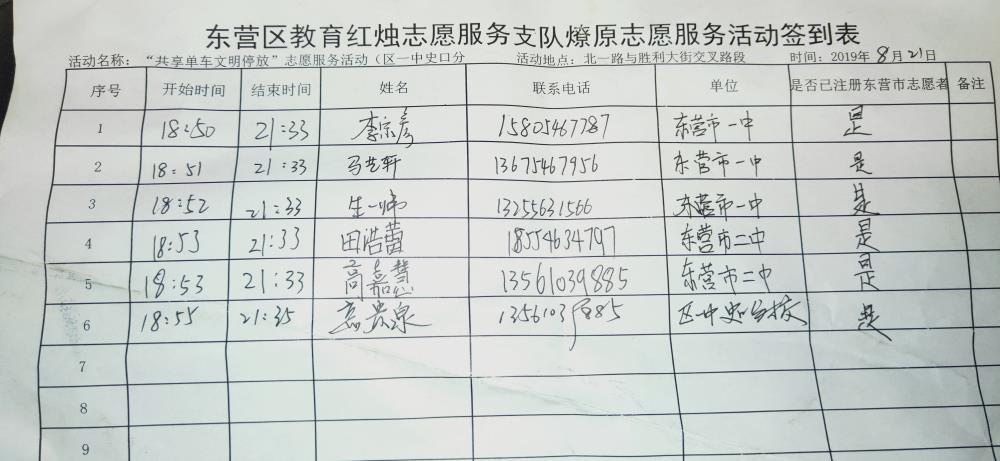 东营区教育红烛志愿服务支队燎原志愿服务活动签到表
活动名称：“共享单车文明停放”志愿服务活动（区一中史口分 活动地点：北一路与胜利大街交叉路段 时间：2019年8月21日
序号 开始时间 结束时间 姓名 联系电话 单位 是否已注册东营市志愿者 备注
1 18:50 21:33 李宗彦 15805467787 东营市一中 是
2 18:51 21:33 马艺轩 13675467956 东营市一中 是
3 18:52 21:33 生一帅 13255631566 东营市一中 是
4 18:53 21:33 田浩蕾 18554634797 东营市二中 是
5 18:53 21:33 高嘉慧 13561039885 东营市二中 是
6 18:55 21:35 高贵泉 区一中史口分校 是
7
8
9